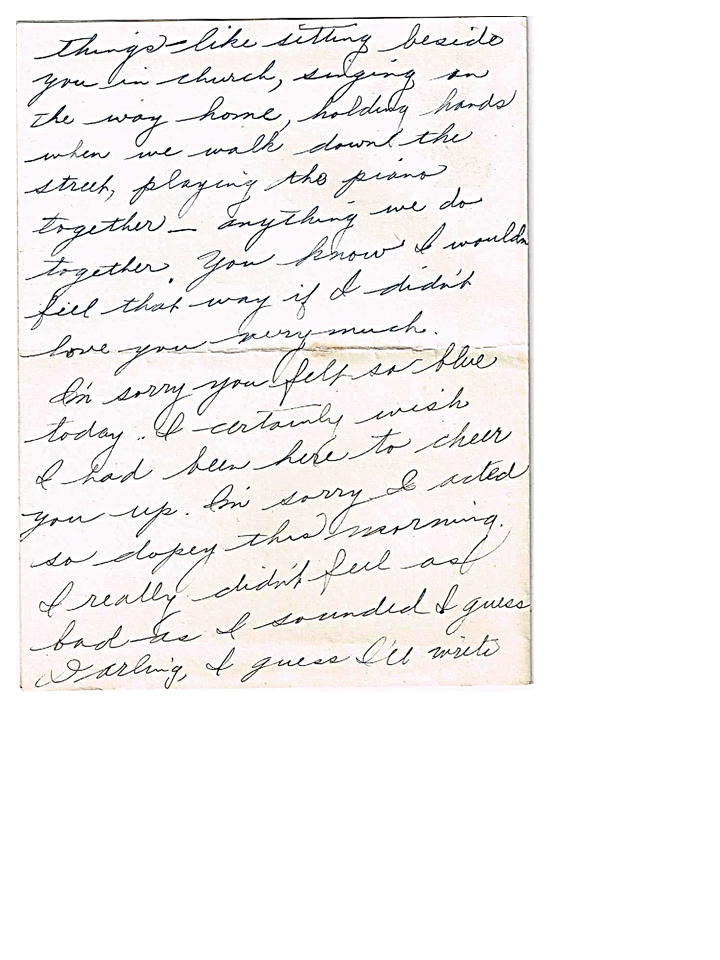 things - like sitting beside
you in church, singing on
the way home, holding hands
when we walk down the
street, playing the piano
together — anything we do
together. You know I wouldn
feel that way if I didn't
love you very much.
I'm sorry you felt so blue
today. I certainly wish
I had been here to cheer
you up. I'm sorry I acted
so dopey this morning.
I really didn't feel as
bad as I sounded I guess
Darling, I guess I'll write